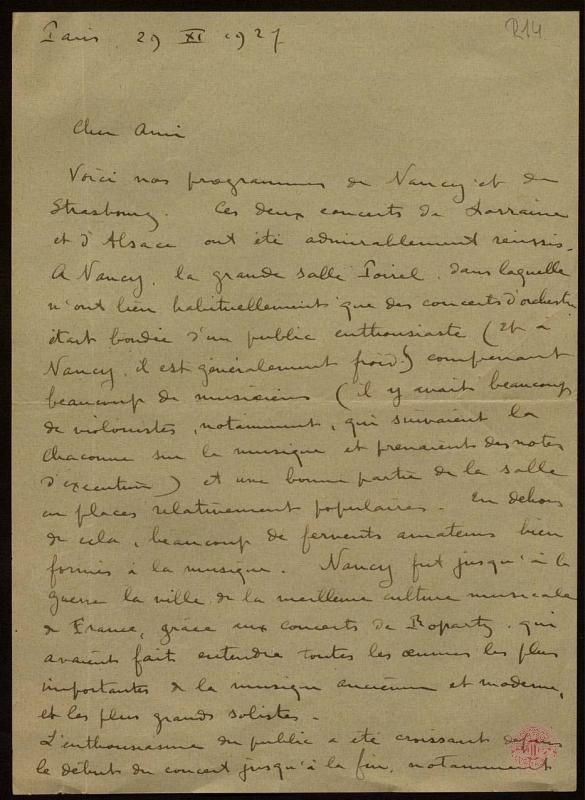 R14
Paris 29 XI 1927
Cher Ami
Voici nos programmes de Nancy et de
Strasbourg. Ces deux concerts de Lorraine
et d'Alsace ont été admirablement réussis.
A Nancy, la grande salle Poirel, dans laquelle
n'ont lieu habituellement que des concerts d'orchestre
était bondée d'un public enthousiaste (et à
Nancy, il est généralement froid) comprenant
beaucoup de musiciens (il y avait beaucoup
de violonistes, notamment, qui suivaient la
chaconne sur la musique et prenaient des notes
d'exécution) et une bonne partie de la salle
en places relativement populaires. En dehors
de cela, beaucoup de fervents amateurs bien
formés à la musique. Nancy fut jusqu'à la
guerre la ville de la meilleure culture musicale
de France, grâce aux concerts de Ropartz, qui
avaient fait entendre toutes les œuvres les plus
importantes de la musique ancienne et moderne,
et les plus grands solistes.
L'enthousiasme du public a été croissant depuis
le début du concert jusqu'à la fin, notamment